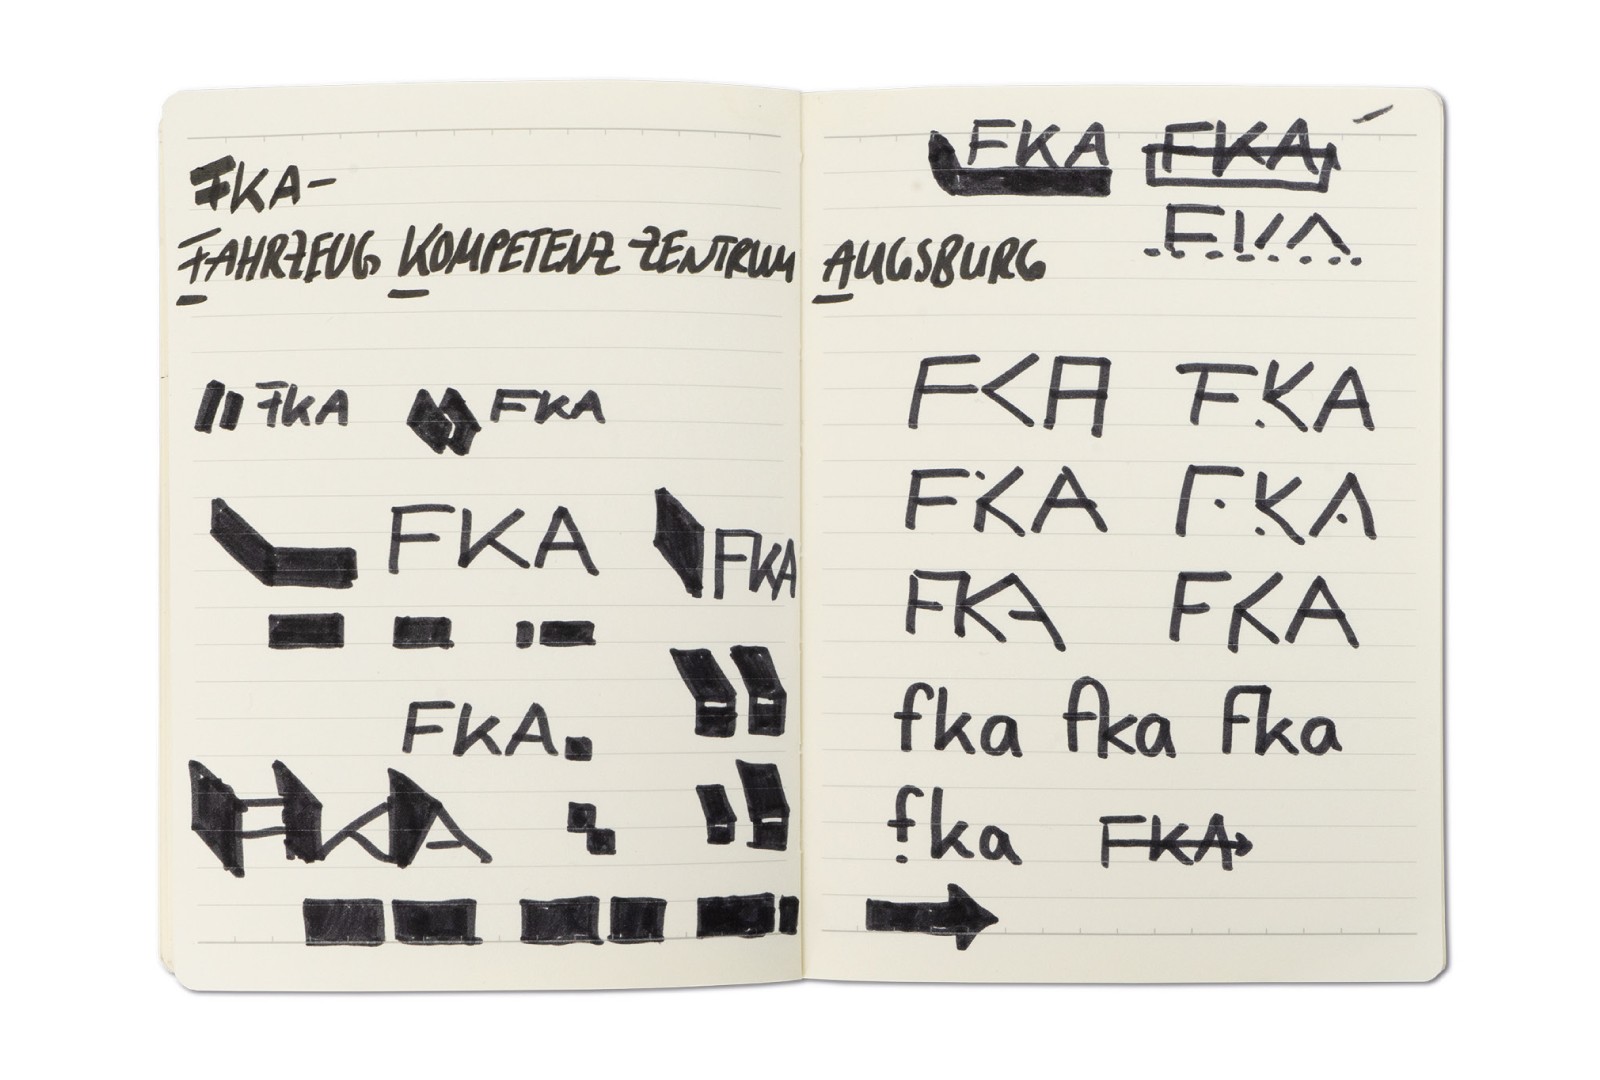 FKA-
FAHRZEUG KOMPETENZ ZENTRUM AUGSBURG
FKA FKA
FKA FKA
FKA.
FKA
FKA FKA
FKA
FKA FKA
FKA FKA
FKA FKA
fka fka fka
fka FKA